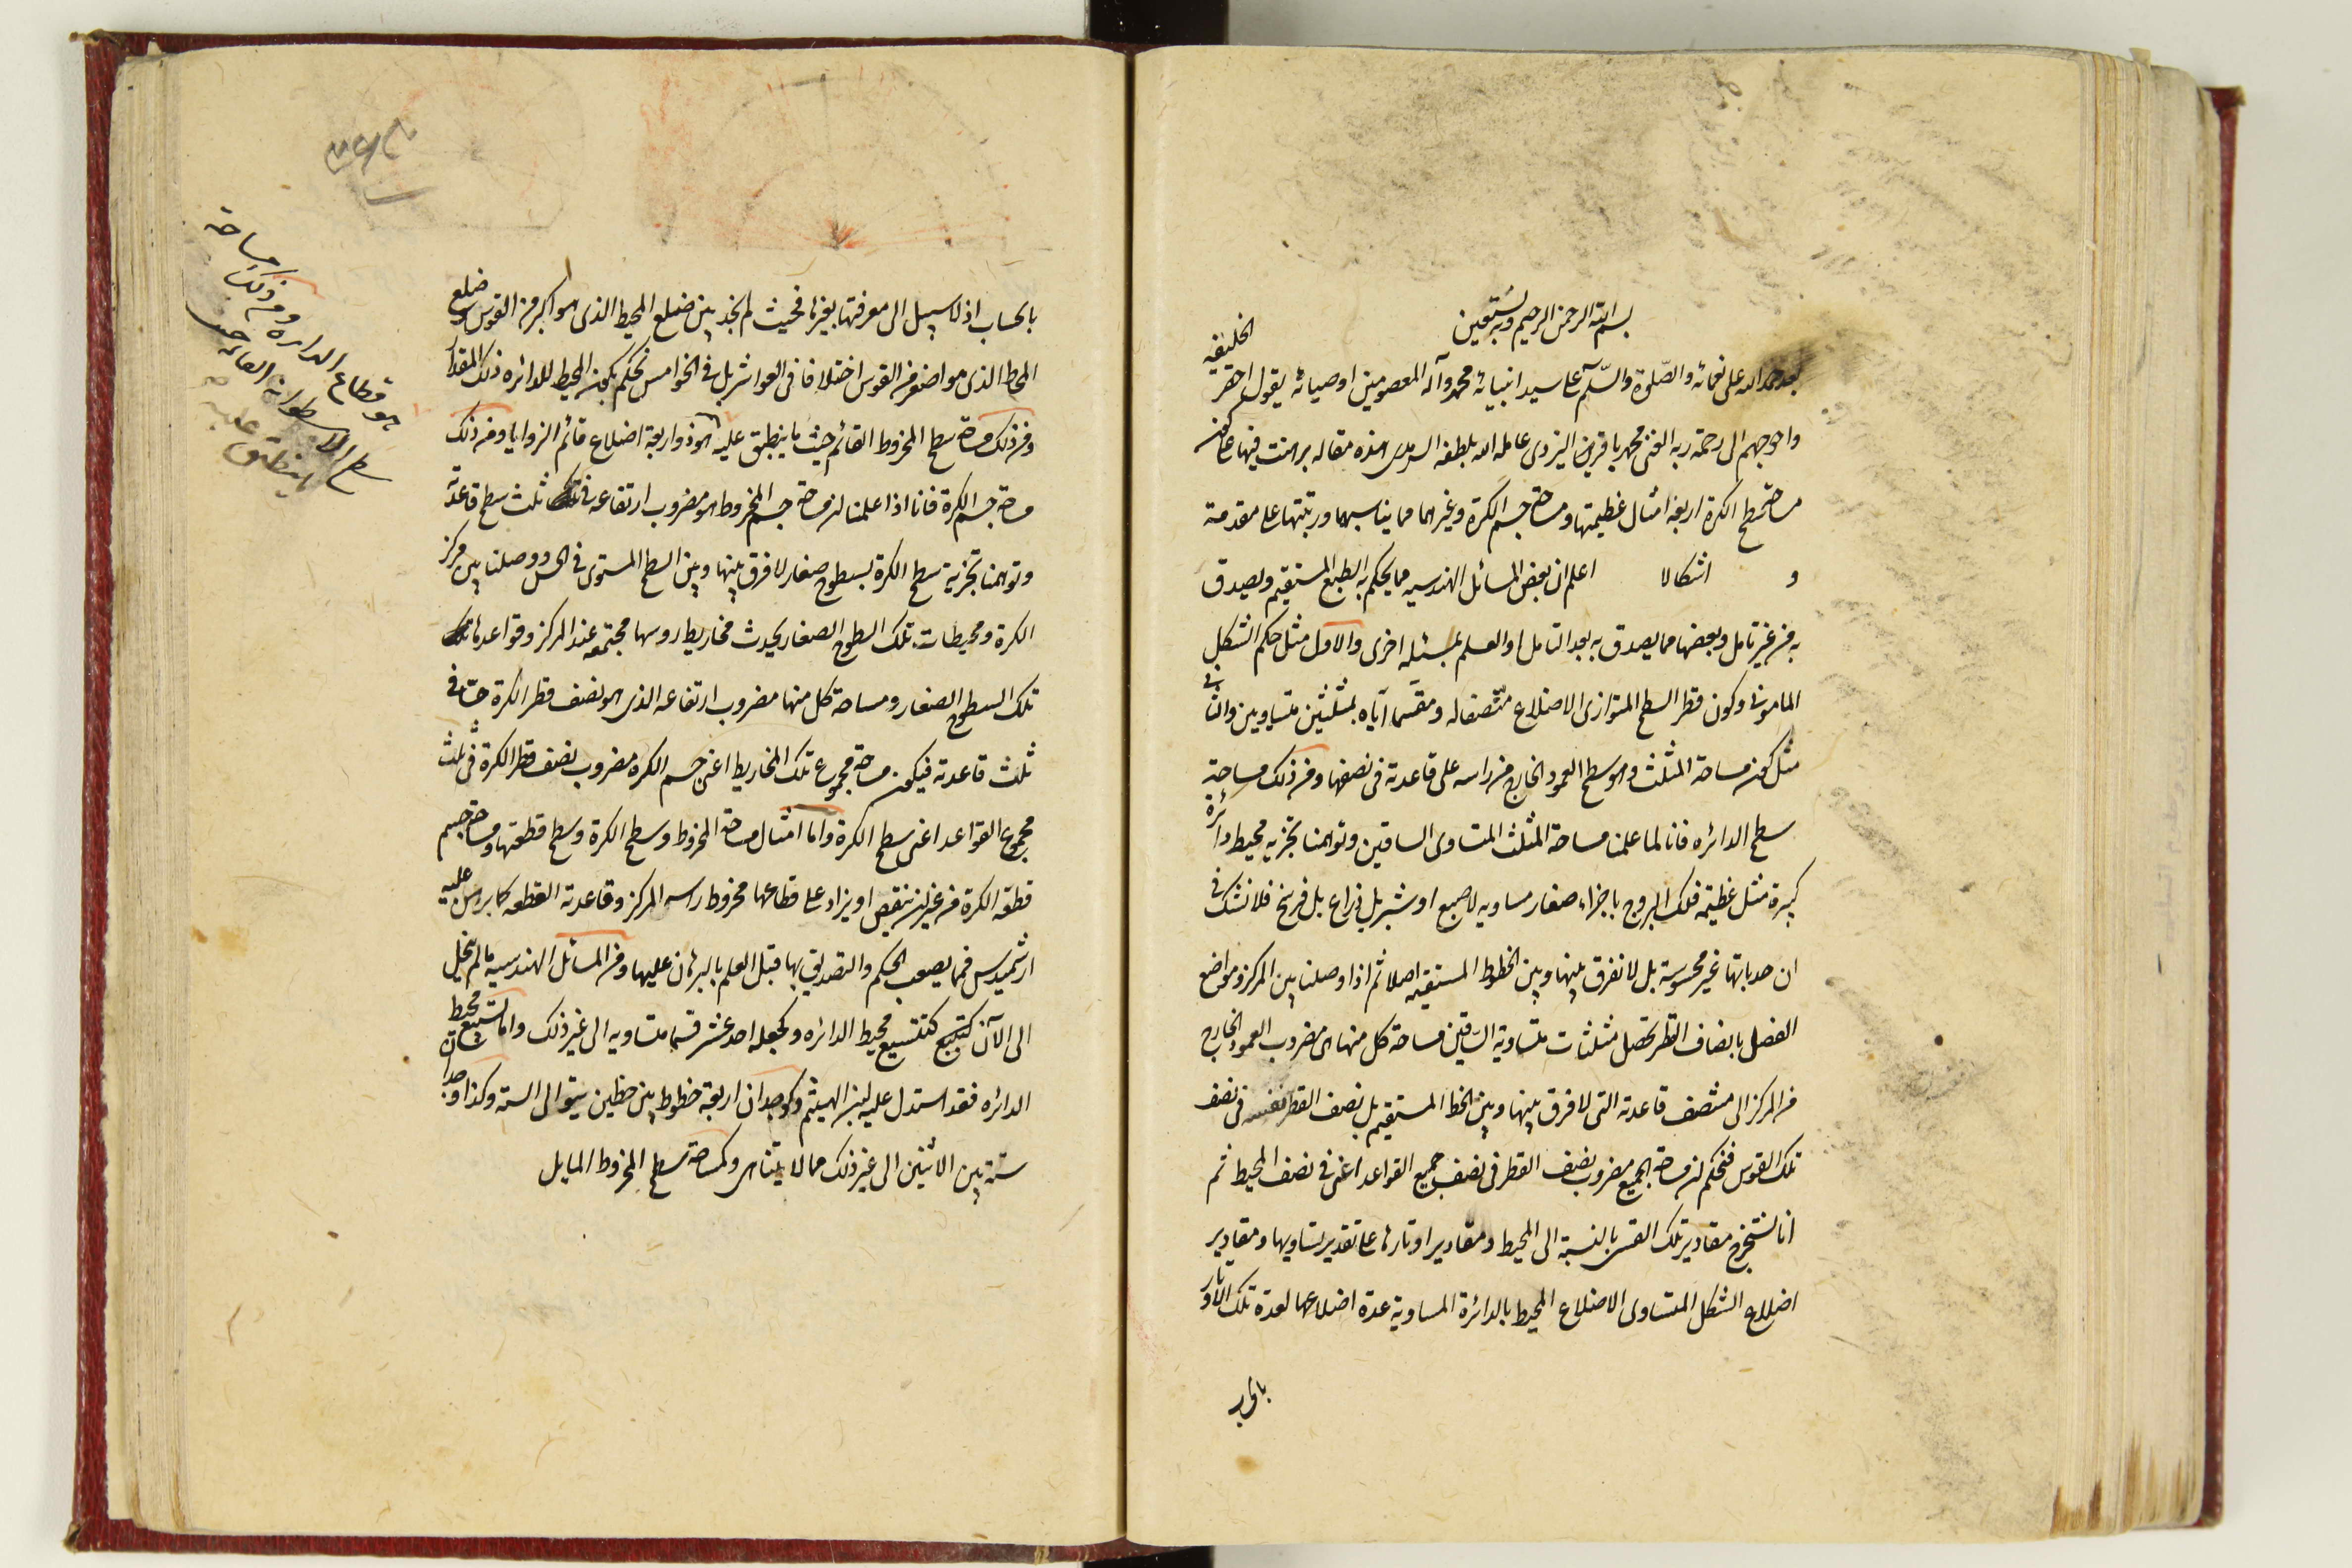 بسم الله الرحمن الرحيم وبه نستعين
بعد حمد الله على نعمائه والصّلوة والسّلم على سيد انبيائه محمد وآله المعصومين اوصيائه يقول احقر الخليقه
واحوجهم الى رحمة ربه الغنى محمد باقر بن اليزدى عامله الله بلطفه السرمدى هذه مقاله برهنت فيها على كون
مساحة سطح الكرة اربعة امثال عظيمتها ومساحة جسم الكرة وغيرهما مما يناسبهما ورتبتها على مقدمة
و اشكالا اعلم ان بعض المسائل الهندسيه مما يحكم به الطبع المستقيم ويصدق
به من غير تامل وبعضها مما يصدق به بعد التامل او العلم بمسئلة اخرى والاول مثل حكم الشكل
المامونى وكون قطر السطح المتوازى الاضلاع منصّفا له ومقسما ايّاه بمثلثين متساويين والثانى
مثل كون مساحة المثلث هو سطح العمود الخارج من راسه على قاعدته فى نصفها ومن ذلك مساحة
سطح الدائره فانا لما علمنا مساحة المثلث المتساوى الساقين وتوهمنا تجزيه محيط دائرة
كبيرة مثل عظيمة فلك البروج باجزاء صغار مساويه لاصبع او شبر بل ذراع بل فرسخ فلا نشك فى
ان حدباتها غير محسوسة بل لا نفرق بينها وبين الخطوط المستقيمه اصلا ثم اذا وصلنا بين المركز ومواضع
الفصل بانصاف القطر تحصل مثلثات متساوية الساقين مساحة كل منها هى مضروب العمود الخارج
من المركز الى منتصف قاعدته التى لا فرق بينها وبين الخط المستقيم بل نصف القطر نفسه فى نصف
تلك القوس فنحكم ان مساحة الجميع مضروب نصف القطر فى نصف جميع القواعد اعنى فى نصف المحيط ثم
انا نستخرج مقادير تلك القسى بالنسبة الى المحيط ومقادير اوتارها على تقدير تساويها ومقادير
اضلاع الشكل المتساوى الاضلاع المحيط بالدائرة المساوية عدة اضلاعها لعدة تلك الاوتار
بالحساب اذ لا سبيل الى معرفتها بغيرها فحيث لم نجد بين ضلع المحيط الذى هو اكبر من القوس وضلع
المحاط الذى هو اصغر من القوس اختلافا فى العواشر بل فى الخوامس نحكم بكون المحيط للدائره ذلك المقدار
ومن ذلك مساحة سطح المخروط القائم حيث ما ينطبق عليه هو ذو اربعة اضلاع قائم الزوايا ومن ذلك
مساحة جسم الكرة فانا اذا علمنا ان مساحة جسم المخروط هو مضروب ارتفاعه فى ثلث سطح قاعدته
وتوهمنا تجزية سطح الكرة بسطوح صغار لا فرق بينها وبين السطح المستوى فى الحس ووصلنا بين مركز
الكرة ومحيطات تلك السطوح الصغار يحدث مخاريط روسها مجتمعه عند المركز وقواعدها
تلك السطوح الصغار ومساحة كل منها مضروب ارتفاعه الذى هو نصف قطر الكرة حسّا فى
ثلث قاعدته فيكون مساحة مجموع تلك المخاريط اعنى جسم الكره مضروب نصف قطر الكرة فى ثلث
مجموع القواعد اعنى سطح الكرة واما امثال مساحة المخروط وسطح الكرة وسطح قطعتها ومساحة جسم
قطعة الكرة من غير ان ينقص او يزاد على قطاعها مخروط راسه المركز وقاعدته القطعه كما برهن عليه
ارشميدس فمما يصعب الحكم والتصديق بها قبل العلم بالبرهان عليها ومن المسائل الهندسيه ما لم ينحل
الى الآن كتسبيع كتتسيع محيط الدائره وكجعله احد عشر قسما متساويه الى غير ذلك واما تسبيع محيط
الدائره فقد استدل عليه ابن الهيثم وكوجدان اربعة خطوط بين خطين يتوالى الستة وكذا وجدان
ستة بين الاثنين الى غير ذلك مما لا يتناهى وكمساحة سطح المخروط المايل
هو قطاع الدائره ومن ذلك مساحة
سطح الاسطوانه القائمه حيث
ما ينطبق عليه